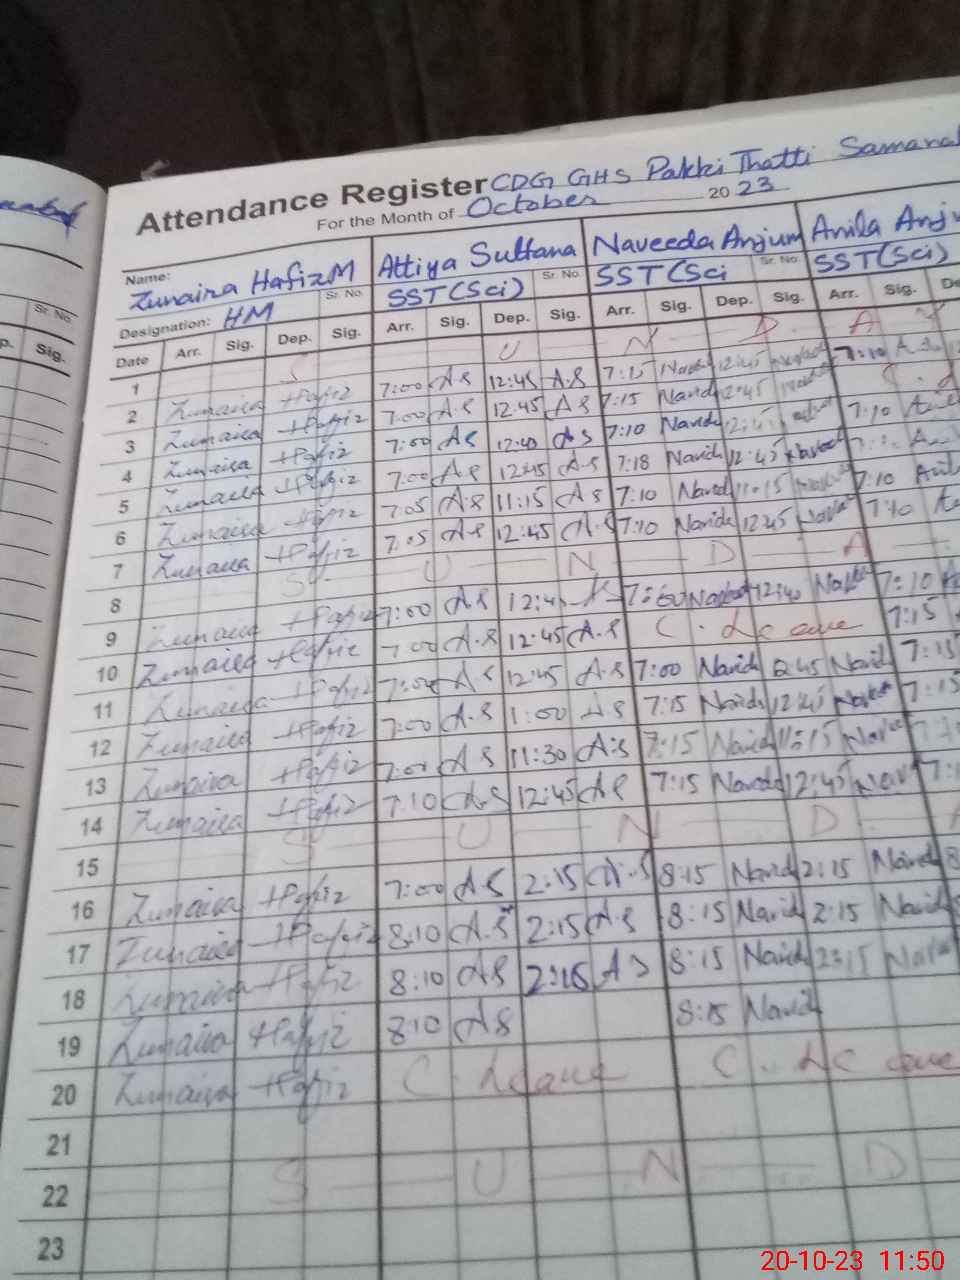 Attendance Register CDG GHS Pakki Thatti Samanab
For the Month of October 2023
Name: Zunaira Hafiz M Attiya Sultana Naveeda Anjum Anila Anju
Sr. No. SST (Sci) Sr. No. SST (Sci Sr. No. SST (Sci)
Designation: HM
Date Arr. Sig. Dep. Sig. Arr. Sig. Dep. Sig. Arr. Sig. Dep. Sig. Arr. Sig. De
1 S U N D A Y
2 Zunaira Hafiz 7:00 A.S 12:45 A.S 7:15 Navid 12:45 7:10
3 Zunaira Hafiz 7:00 A.S 12:45 A.S 7:15 Navid 12:45
4 Zunaira Hafiz 7:00 A.S 12:40 A.S 7:10 Navid 7:10
5 Zunaira Hafiz 7:00 A.S 12:45 A.S 7:18 Navid 12:45
6 Zunaira Hafiz 7:05 A.S 11:15 A.S 7:10 Navid 11:15 7:10
7 Zunaira Hafiz 7:05 A.S 12:45 A.S 7:10 Navid 12:45 7:10
8 S U N D A
9 Zunaira Hafiz 7:00 A.S 12:40 7:10
10 Zunaira Hafiz 7:00 A.S 12:45 A.S C. Leave 7:15
11 Zunaira Hafiz 7:00 A.S 12:45 A.S 7:00 Navid 12:45 Navid 7:15
12 Zunaira Hafiz 7:00 A.S 1:00 A.S 7:15 Navid 12:45 7:15
13 Zunaira Hafiz 7:00 A.S 11:30 A.S 7:15 Navid 11:15
14 Zunaira Hafiz 7:10 A.S 12:45 A.S 7:15 Navid 12:45
15 S U N D A
16 Zunaira Hafiz 7:00 A.S 2:15 A.S 8:15 Navid 2:15 Navid
17 Zunaira Hafiz 8:10 A.S 2:15 A.S 8:15 Navid 2:15 Navid
18 Zunaira Hafiz 8:10 A.S 2:15 A.S 8:15 Navid 2:15
19 Zunaira Hafiz 8:10 A.S 8:15 Navid
20 Zunaira Hafiz C. Leave C. Leave
21
22 S U N D
23
20-10-23 11:50